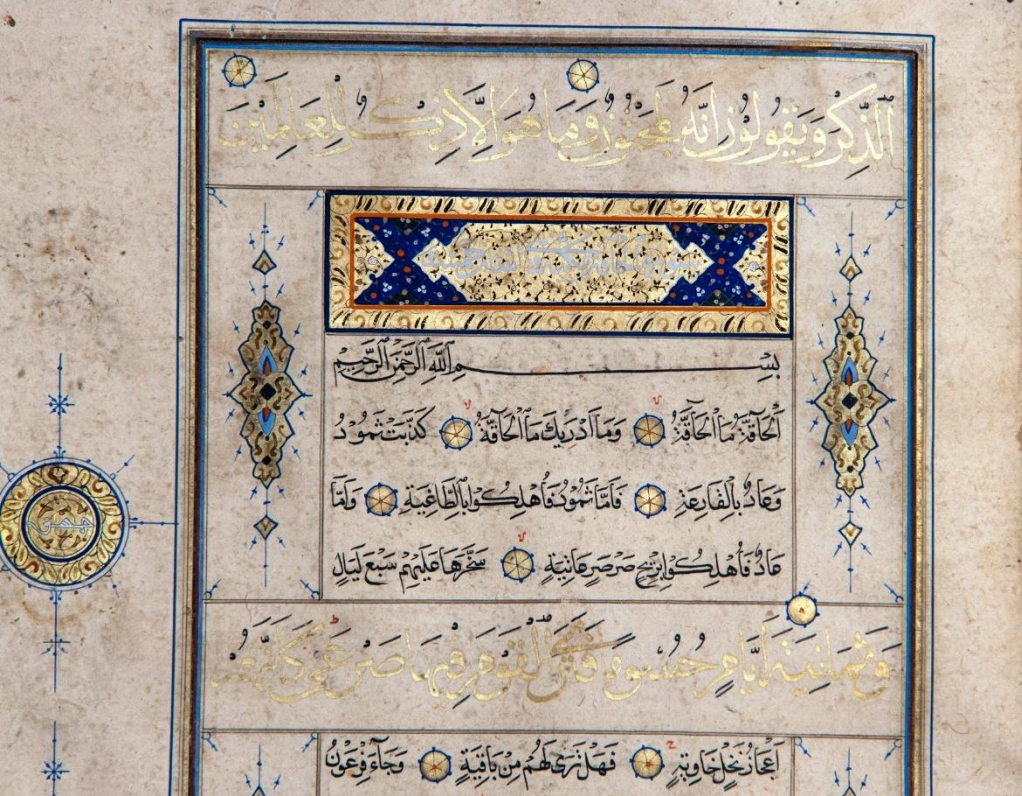 الَّذِّكْرَ وَيَقُولُونَ اِنَّهُ لَمَجْنُونٌ وَمَا هُوَ اِلَّا ذِكْرٌ لِلْعَالَمِينَ
بِسْمِ اللَّهِ الرَّحْمَنِ الرَّحِيمِ
اَلْحَآقَّةُ مَا الْحَآقَّةُ وَمَا اَدْرٰيكَ مَا الْحَآقَّةُ كَذَّبَتْ ثَمُودُ
وَعَادٌ بِالْقَارِعَةِ فَاَمَّا ثَمُودُ فَاُهْلِكُوا بِالطَّاغِيَةِ وَاَمَّا
عَادٌ فَاُهْلِكُوا بِرِيحٍ صَرْصَرٍ عَاتِيَةٍ سَخَّرَهَا عَلَيْهِمْ سَبْعَ لَيَالٍ
وَثَمَانِيَةَ اَيَّامٍ حُسُومًا فَتَرَى الْقَوْمَ فِيهَا صَرْعٰى كَاَنَّهُمْ
اَعْجَازُ نَخْلٍ خَاوِيَةٍ فَهَلْ تَرٰى لَهُمْ مِنْ بَاقِيَةٍ وَجَآءَ فِرْعَوْنُ